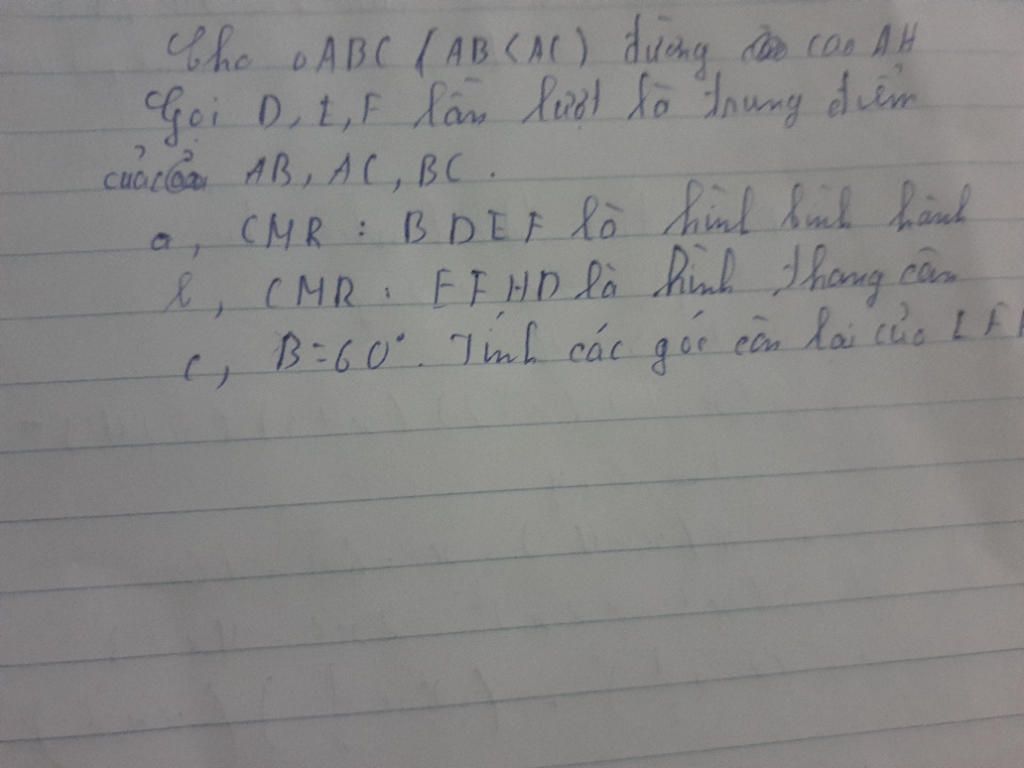 Cho ΔABC (AB<AC) đường cao AH
Gọi D, E, F lần lượt là trung điểm
của của AB, AC, BC.
a, CMR : BDEF là hình bình hành
b, CMR : EFHD là hình thang cân
c, B=60°. Tính các góc còn lại của EF